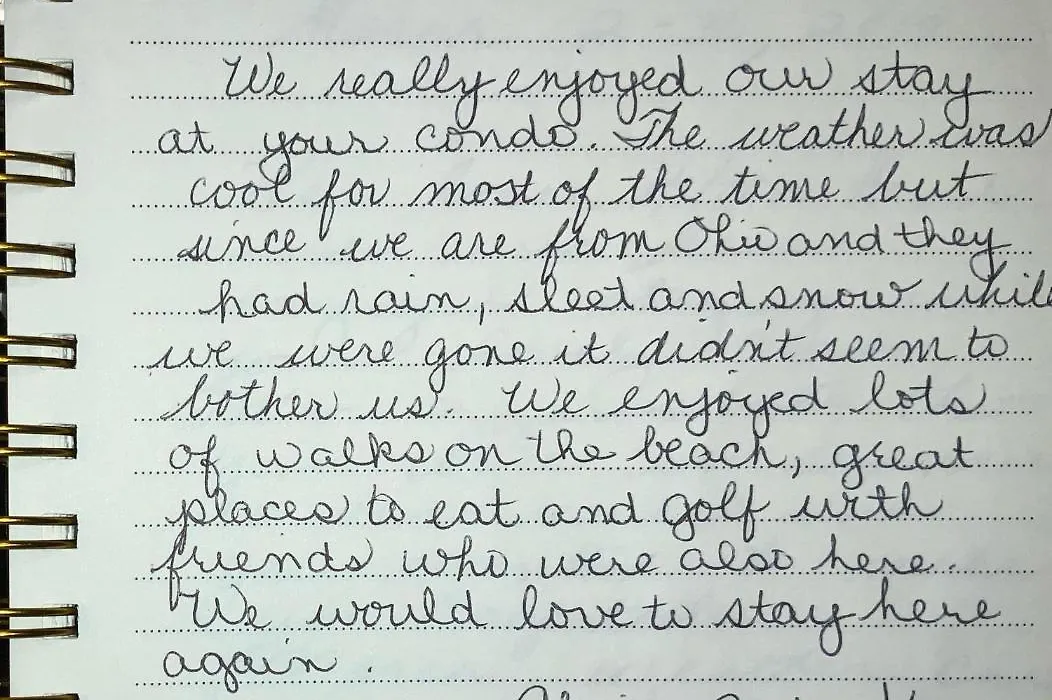 We really enjoyed our stay
at your condo. The weather was
cool for most of the time but
since we are from Ohio and they
had rain, sleet and snow while
we were gone it didn't seem to
bother us. We enjoyed lots
of walks on the beach, great
places to eat and golf with
friends who were also here.
We would love to stay here
again.